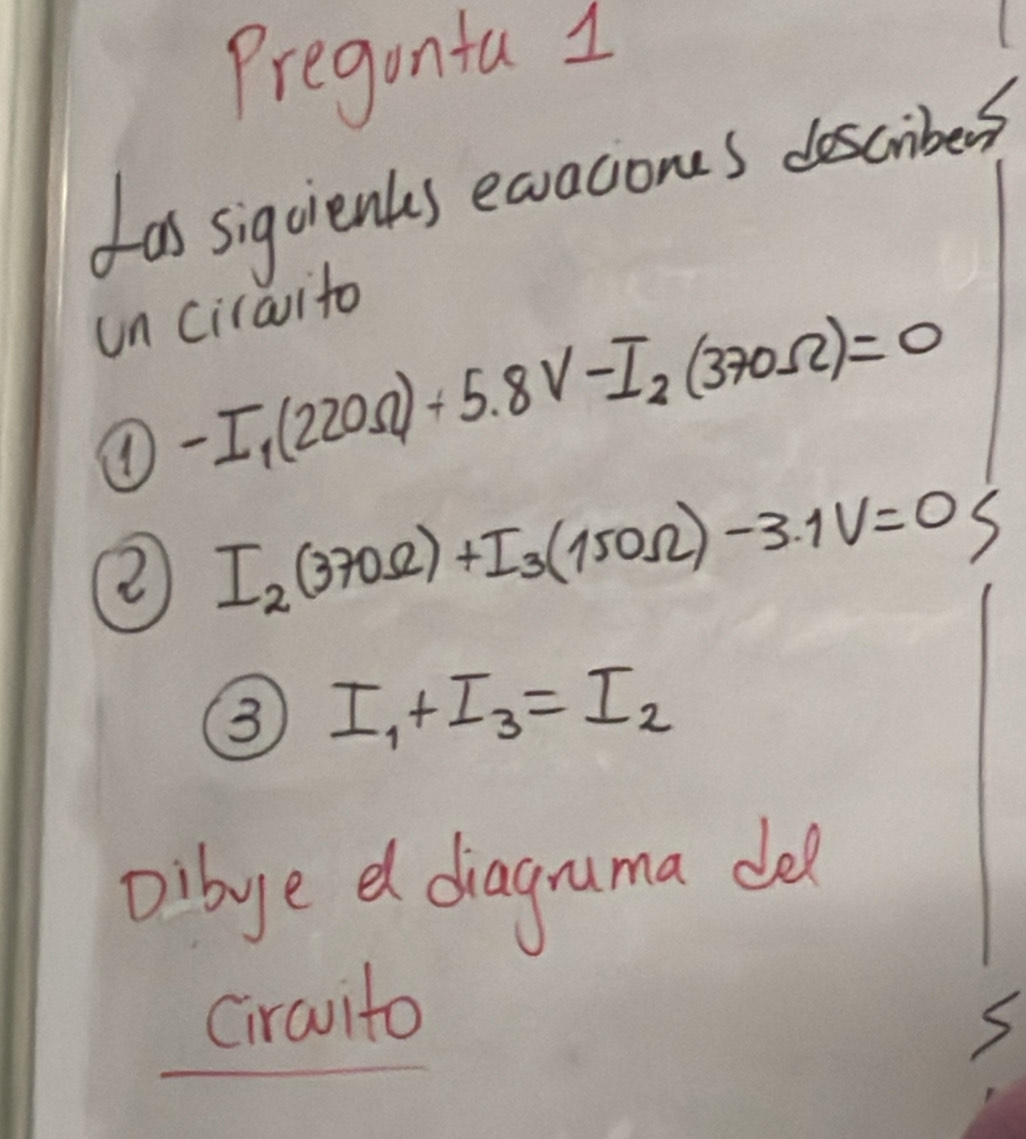 Pregunta 1
Las siguientes ecuaciones describen
un circuito
① -I₁(220Ω) + 5.8V - I₂(370Ω) = 0
② I₂(370Ω) + I₃(150Ω) - 3.1V = 0
③ I₁ + I₃ = I₂
Dibuje el diagrama del
circuito